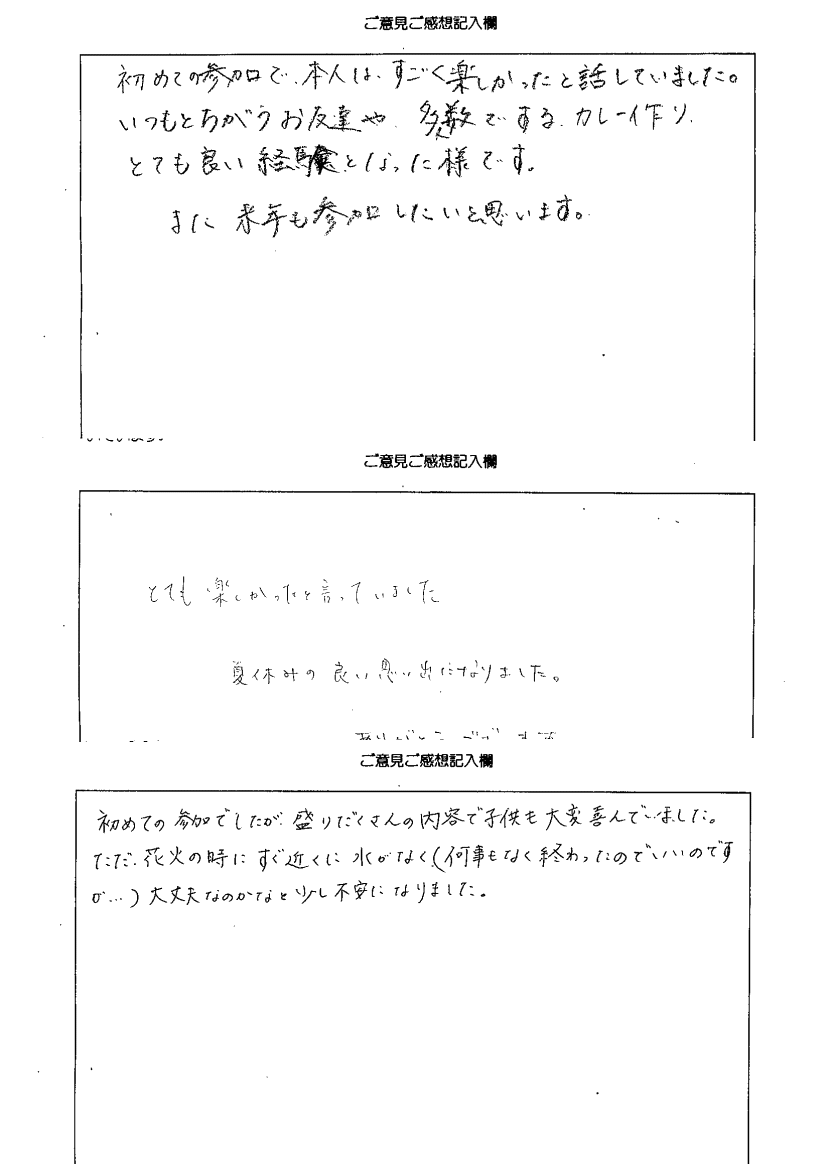 ご意見ご感想記入欄
初めての参加で、本人は、すごく楽しかったと話していました。
いつもとちがうお友達や、多人数でする、カレー作り、
とても良い経験となった様です。
また来年も参加したいと思います。
ご意見ご感想記入欄
とても楽しかったと言っていました
夏休みの良い思い出になりました。
ご意見ご感想記入欄
初めての参加でしたが、盛りだくさんの内容で子供も大変喜んでいました。
ただ、花火の時にすぐ近くに水がなく(何事もなく終わったのでいいのです
が…)大丈夫なのかなと少し不安になりました。